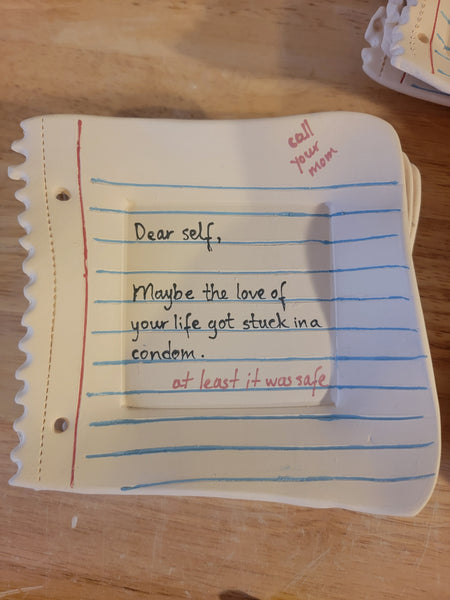 call
your
mom
Dear self,
Maybe the love of
your life got stuck in a
condom.
at least it was safe